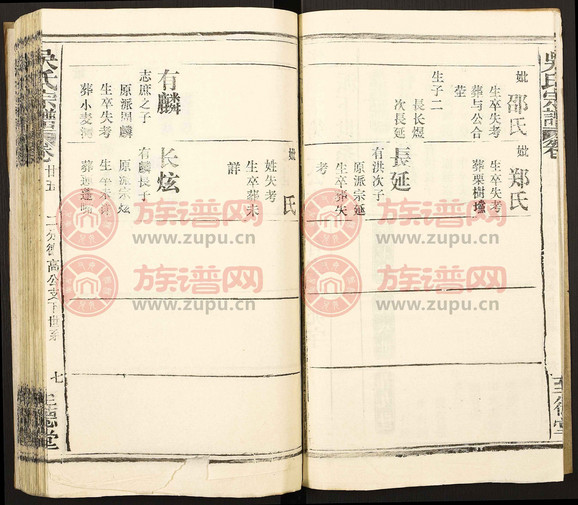 吳氏宗譜
卷
至德堂
妣邵氏
生卒失考
葬与公合
茔
生子二
長長煜
次長延
妣郑氏
生卒失考
葬栗樹
長延
有洪次子
原派宗
生卒失
考
妣氏
姓失考
生卒葬未
詳
有麟
志庶之子
原派周麟
生卒失考
葬小麦
长炫
有麟長子
原派宗炫
生卒
葬
吳氏宗譜
卷廿五
高公支下世系
七
至德堂
族谱网
www.zupu.cn
族谱网
www.zupu.cn
族谱网
www.zupu.cn
族谱网
www.zupu.cn